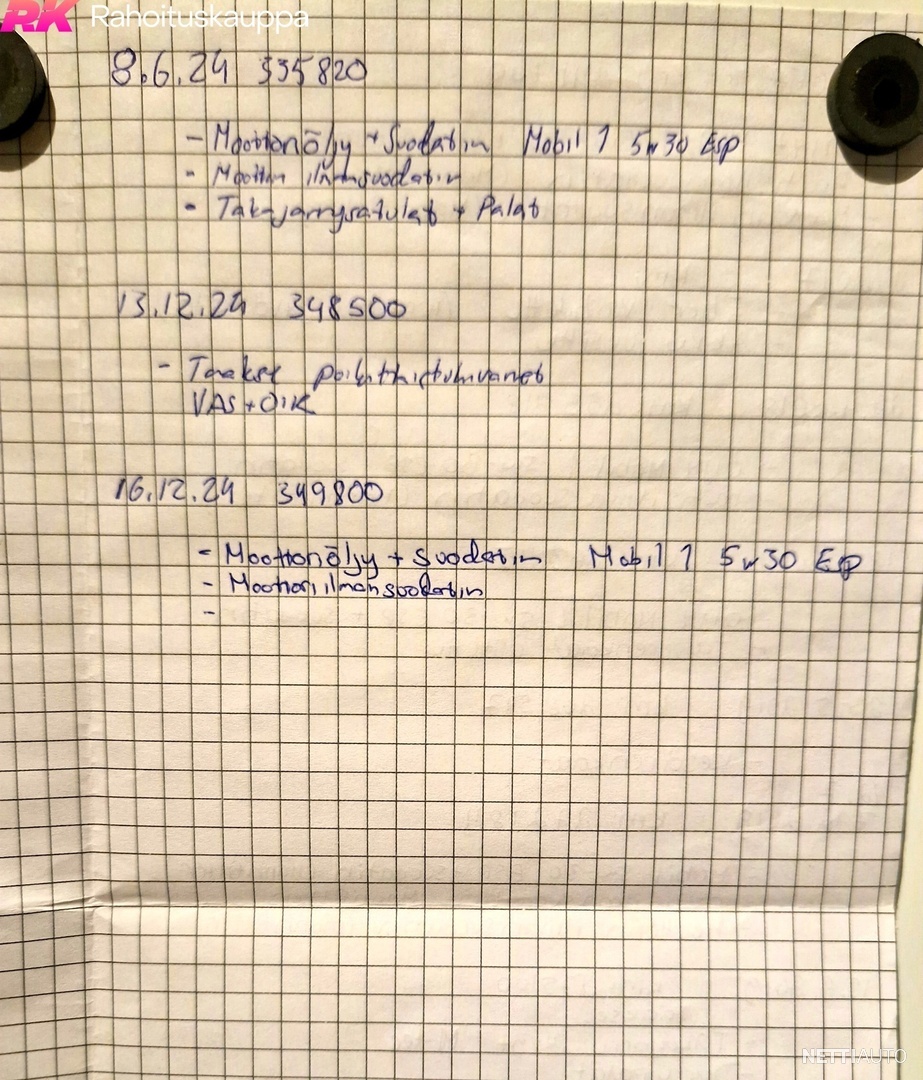 RK Rahoituskauppa
8.6.24 335820
- Moottoriöljy + Suodatin Mobil 1 5w30 Esp
- Moottorin ilmansuodatin
- Takajarrysatulat + Palat
13.12.24 348500
- Taakse poikittaistukivarret
VAS + OIK
16.12.24 349800
- Moottoriöljy + Suodatin Mobil 1 5w30 Esp
- Moottori ilmansuodatin
-
NETTIAUTO